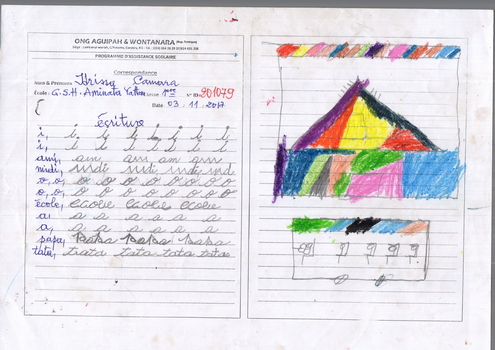 ONG AGUIPAH & WONTANARA
PROGRAMME D'ASSISTANCE SCOLAIRE
Correspondance
Nom & Prénoms Camara
Ecole: G.S.H. Aminata 1ère N° ID 201079
Date: 03.11.2017
écriture
i, i i i i i i i
i, i i i i i i i
ami, ami ami ami ami
midi, midi midi midi midi
o, o o o o o o o
o, o o o o o o o
école, école école école
a, a a a a a a
a, a a a a a a
papa, papa papa papa
tata, tata tata tata tata